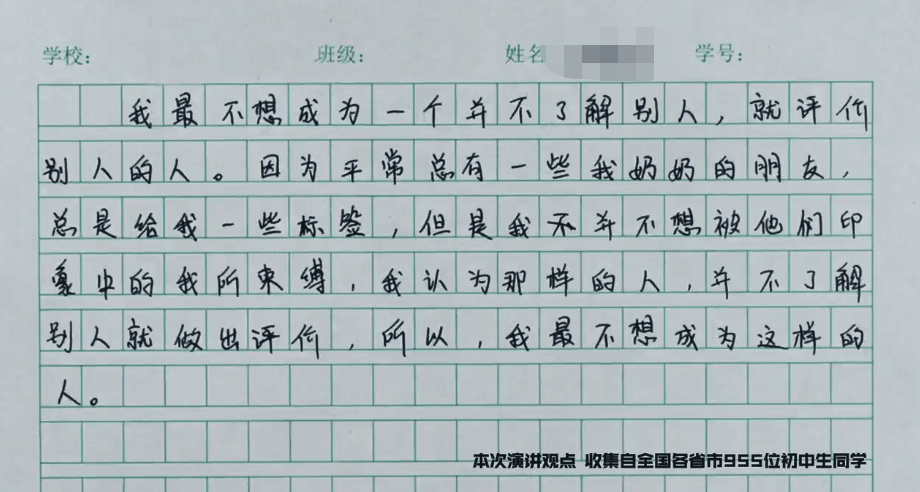 学校： 班级： 姓名 学号：
我最不想成为一个并不了解别人，就评价
别人的人。因为平常总有一些我奶奶的朋友，
总是给我一些标签，但是我不并不想被他们印
象中的我所束缚，我认为那样的人，并不了解
别人就做出评价，所以，我最不想成为这样的
人。
本次演讲观点 收集自全国各省市955位初中生同学